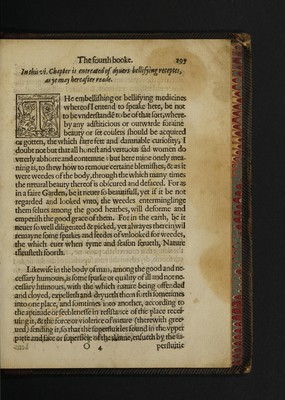 The fourth booke. 293
In this vi. Chapter is entreated of dyuers bellifying receptes,
as ye may hereafter reade.
THe embellishing or bellifying medicines
whereof I entend to speake here, be not
to be vnderstandē to be of that sort, where-
by any adsciticious or conterfete foraine
beauty or set coulers should be acquired
or gotten, the which fare fete and damnable curiosity, I
doubt not but that all honest and vertuous sad women do
vtterly abhorre and contemne: but here mine onely mea-
ning is, to shew how to remoue certaine blemishes, & as it
were weedes of the body, through the which many times
the naturall beauty thereof is obscured and defaced. For as
in a faire Garden, be it neuer so beautifull, yet if it be not
regarded and looked vnto, the weedes entermingling
them selues among the good hearbes, will deforme and
emperish the good grace of them. For in the earth, be it
neuer so well diligented & picked, yet alwayes therein wil
remayne some sparkes and seedes of vnlooked for weedes,
the which euer when tyme and season serueth, Nature
thrusteth foorth.
Likewise in the body of man, among the good and ne-
cessary humours, is some sparke or quality of ill and not ne-
cessary humours, with the which nature being offended
and cloyed, expelleth and dryueth them forth sometimes
into one place, and somtimes into another, according to
the aptitude or feeblenesse in resistance of the place recei-
uing it, & the force or violence of nature (therewith gree-
ued) sending it, so that the superfluities found in the vpper
parte and face or superficie of the skinne, ensueth by the su-
O 4 perfluitie